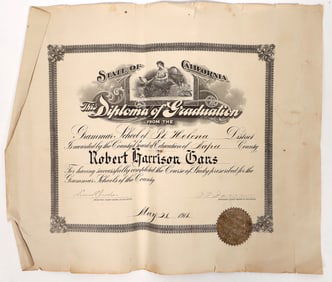 STATE OF CALIFORNIA
This Diploma of Graduation
FROM THE
Grammar School of St Helena District
Is awarded by the County Board of Education of Napa County
Robert Harrison Gans
For having successfully completed the Course of Study prescribed for the
Grammar Schools of the County
May 21